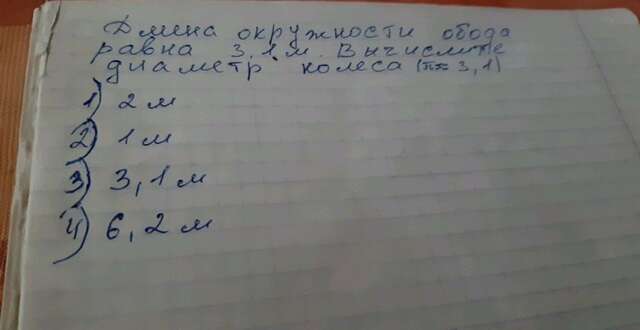 Длина окружности обода
равна 3,1 м. Вычислите
диаметр колеса (π≈3,1)
1) 2 м
2) 1 м
3) 3,1 м
4) 6,2 м